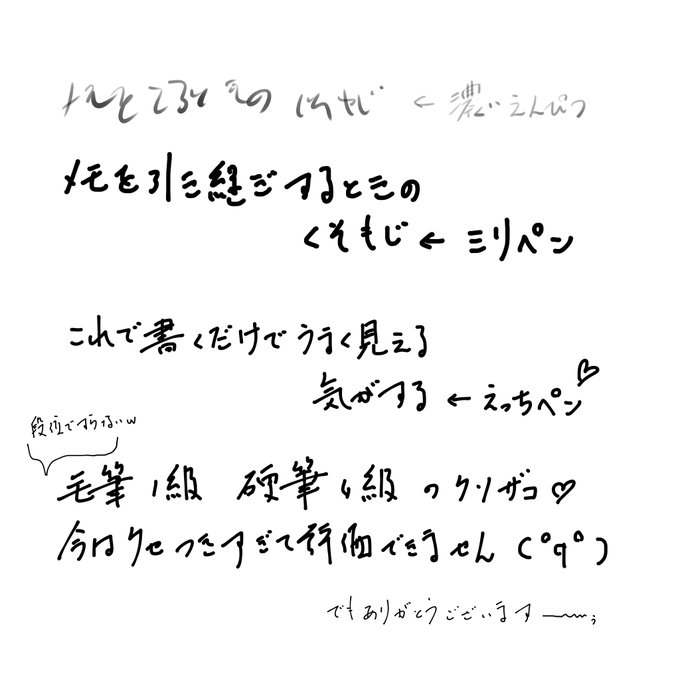 ← 濃いえんぴつ
メモを引き継ぎするときの
くそもじ ← ミリペン
これで書くだけでうまく見える
気がする ← えっちペン♡
段位ですらないw
毛筆1級 硬筆 級 のクソザコ♡
今はクセつきすぎて評価できません ( °q° )
でもありがとうございますー